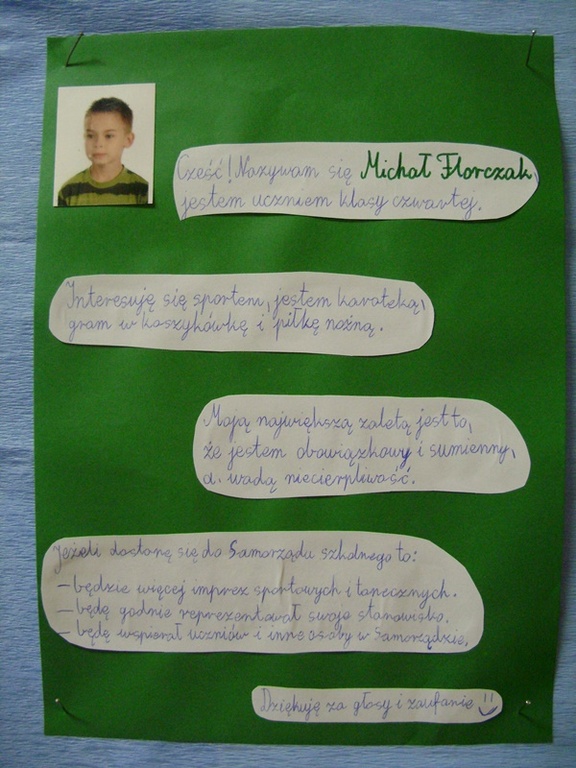 Cześć! Nazywam się Michał Florczak,
jestem uczniem klasy czwartej.
Interesuję się sportem, jestem karateką,
gram w koszykówkę i piłkę nożną.
Moją największą zaletą jest to,
że jestem obowiązkowy i sumienny,
a wadą niecierpliwość.
Jeżeli dostanę się do Samorządu szkolnego to:
- będzie więcej imprez sportowych i tanecznych.
- będę godnie reprezentował swoje stanowisko.
- będę wspierał uczniów i inne osoby w Samorządzie.
Dziękuję za głosy i zaufanie !!